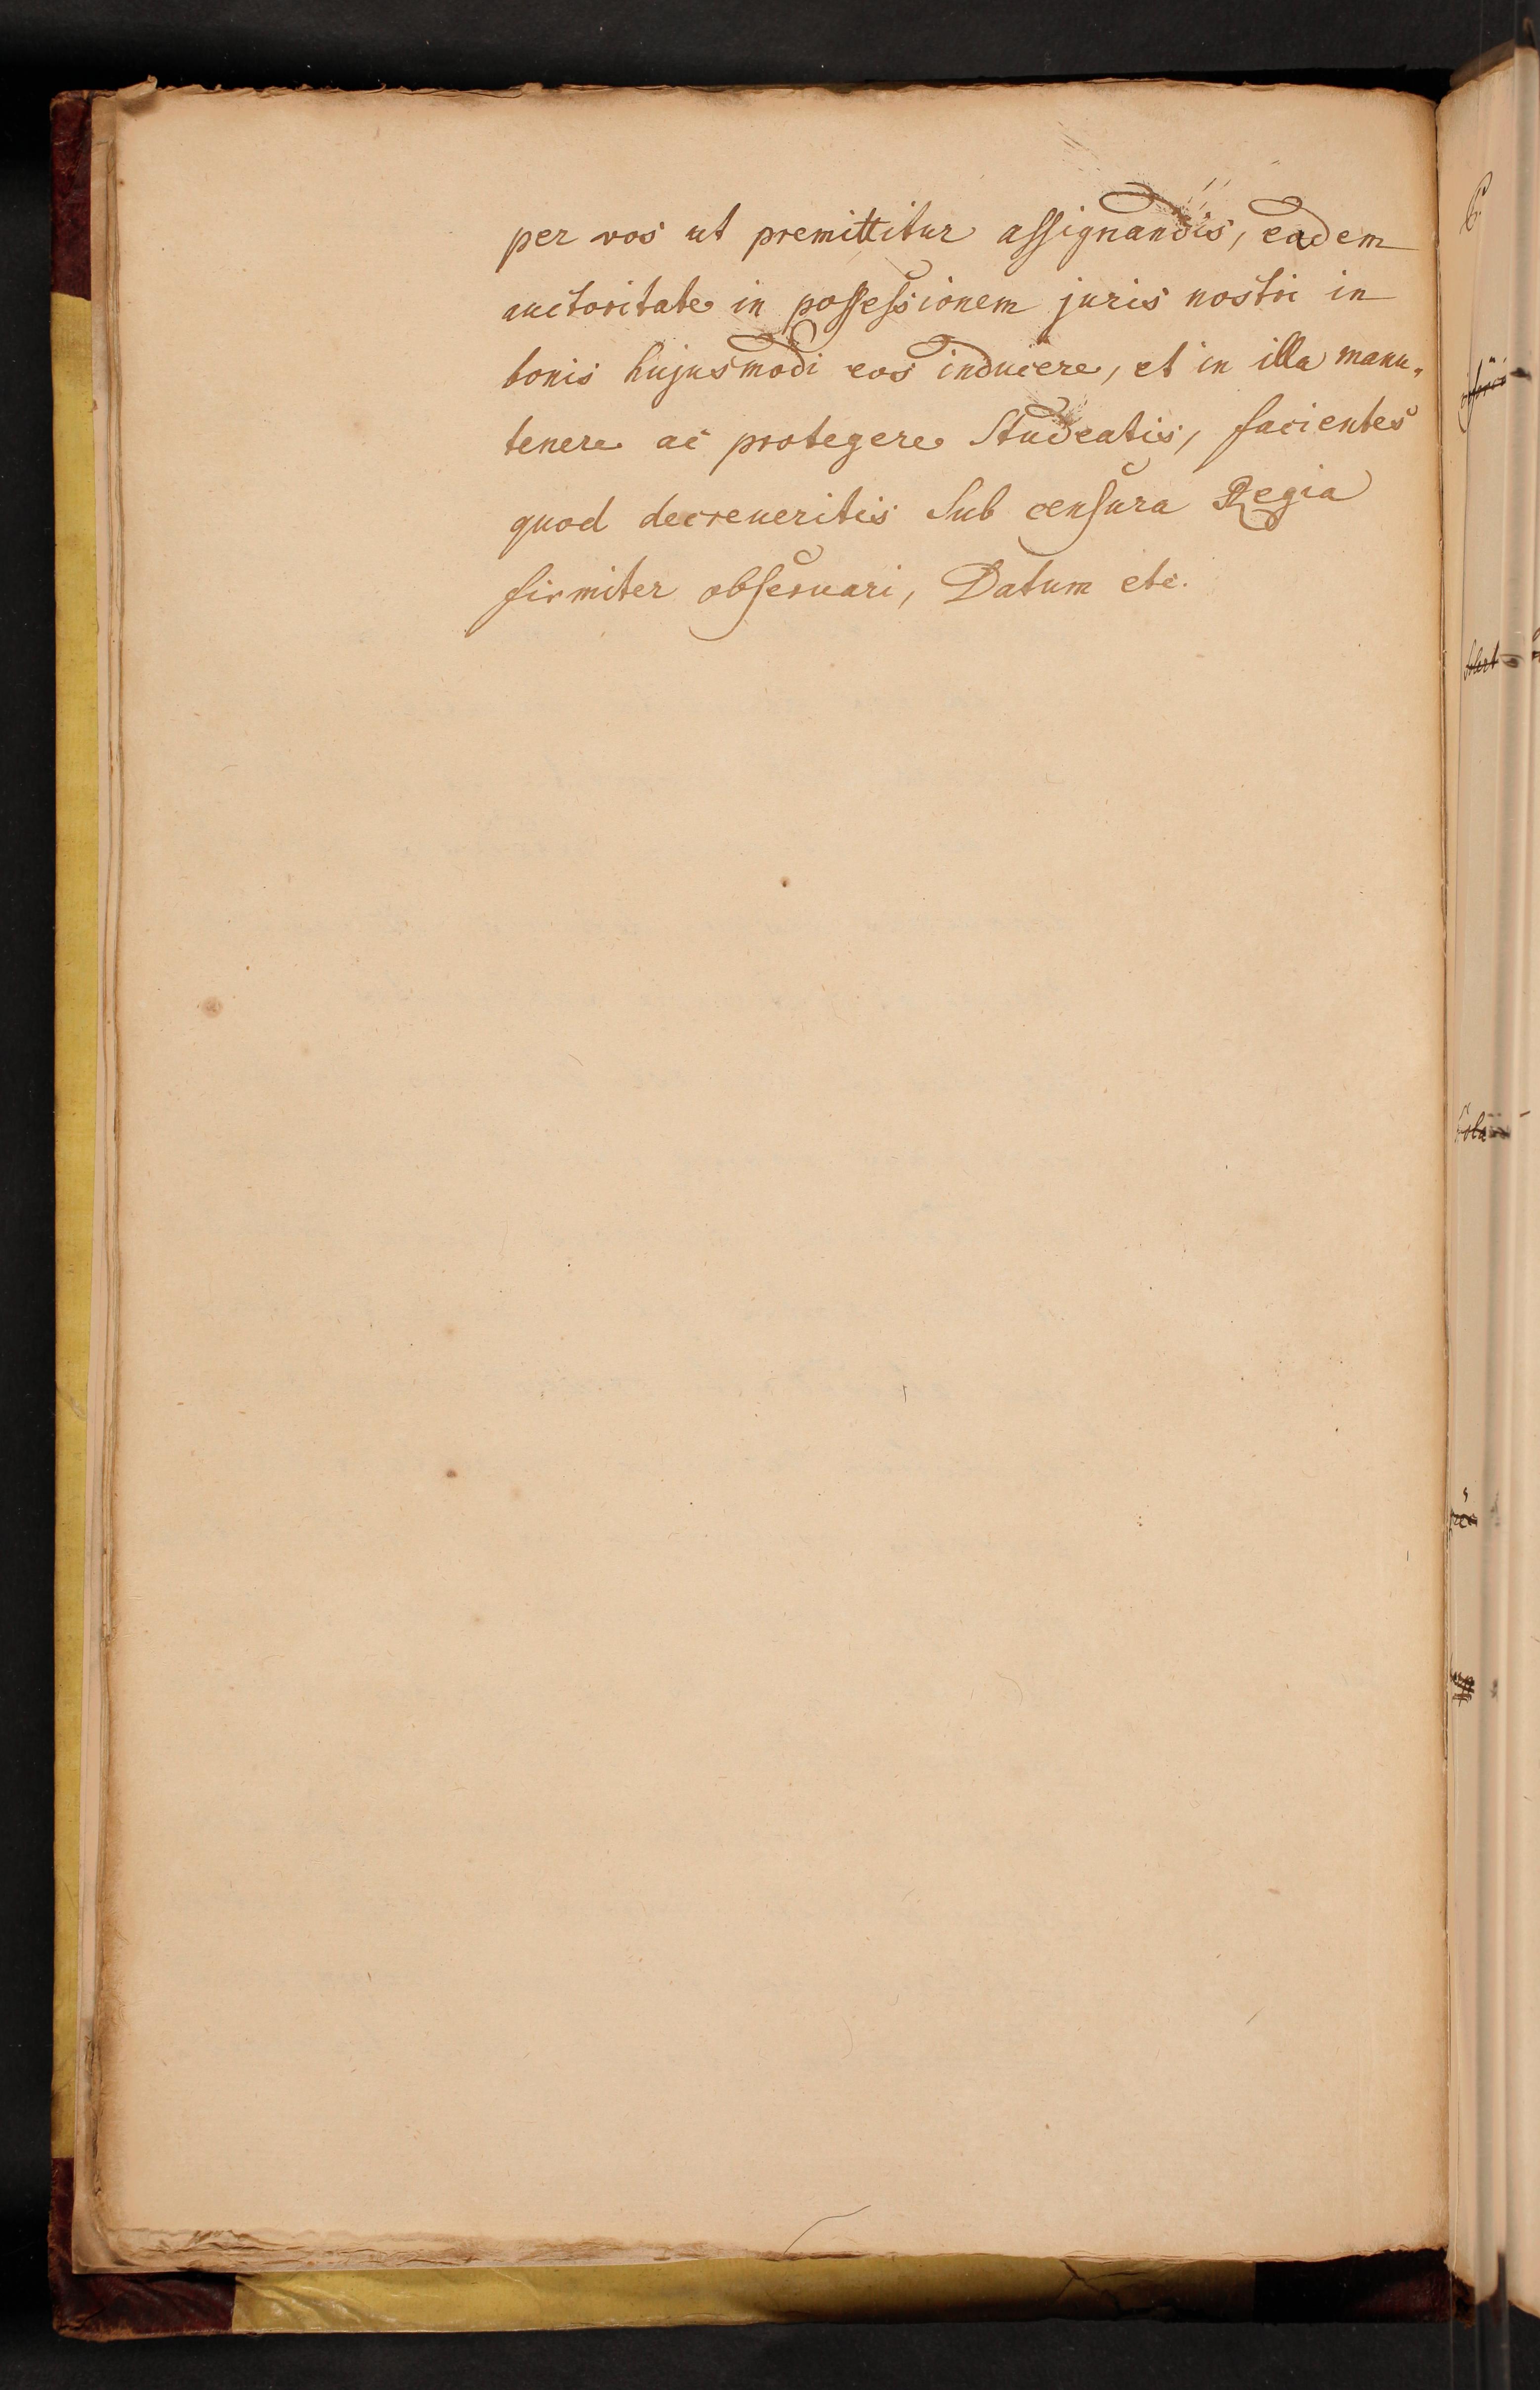 per vos ut premittitur assignandis, eadem
auctoritate in possessionem juris nostri in
bonis hujusmodi eos inducere, et in illa manu„
tenere ac protegere Studeatis, facientes
quod decreueritis Sub censura Regia
firmiter obseruari, Datum etc.